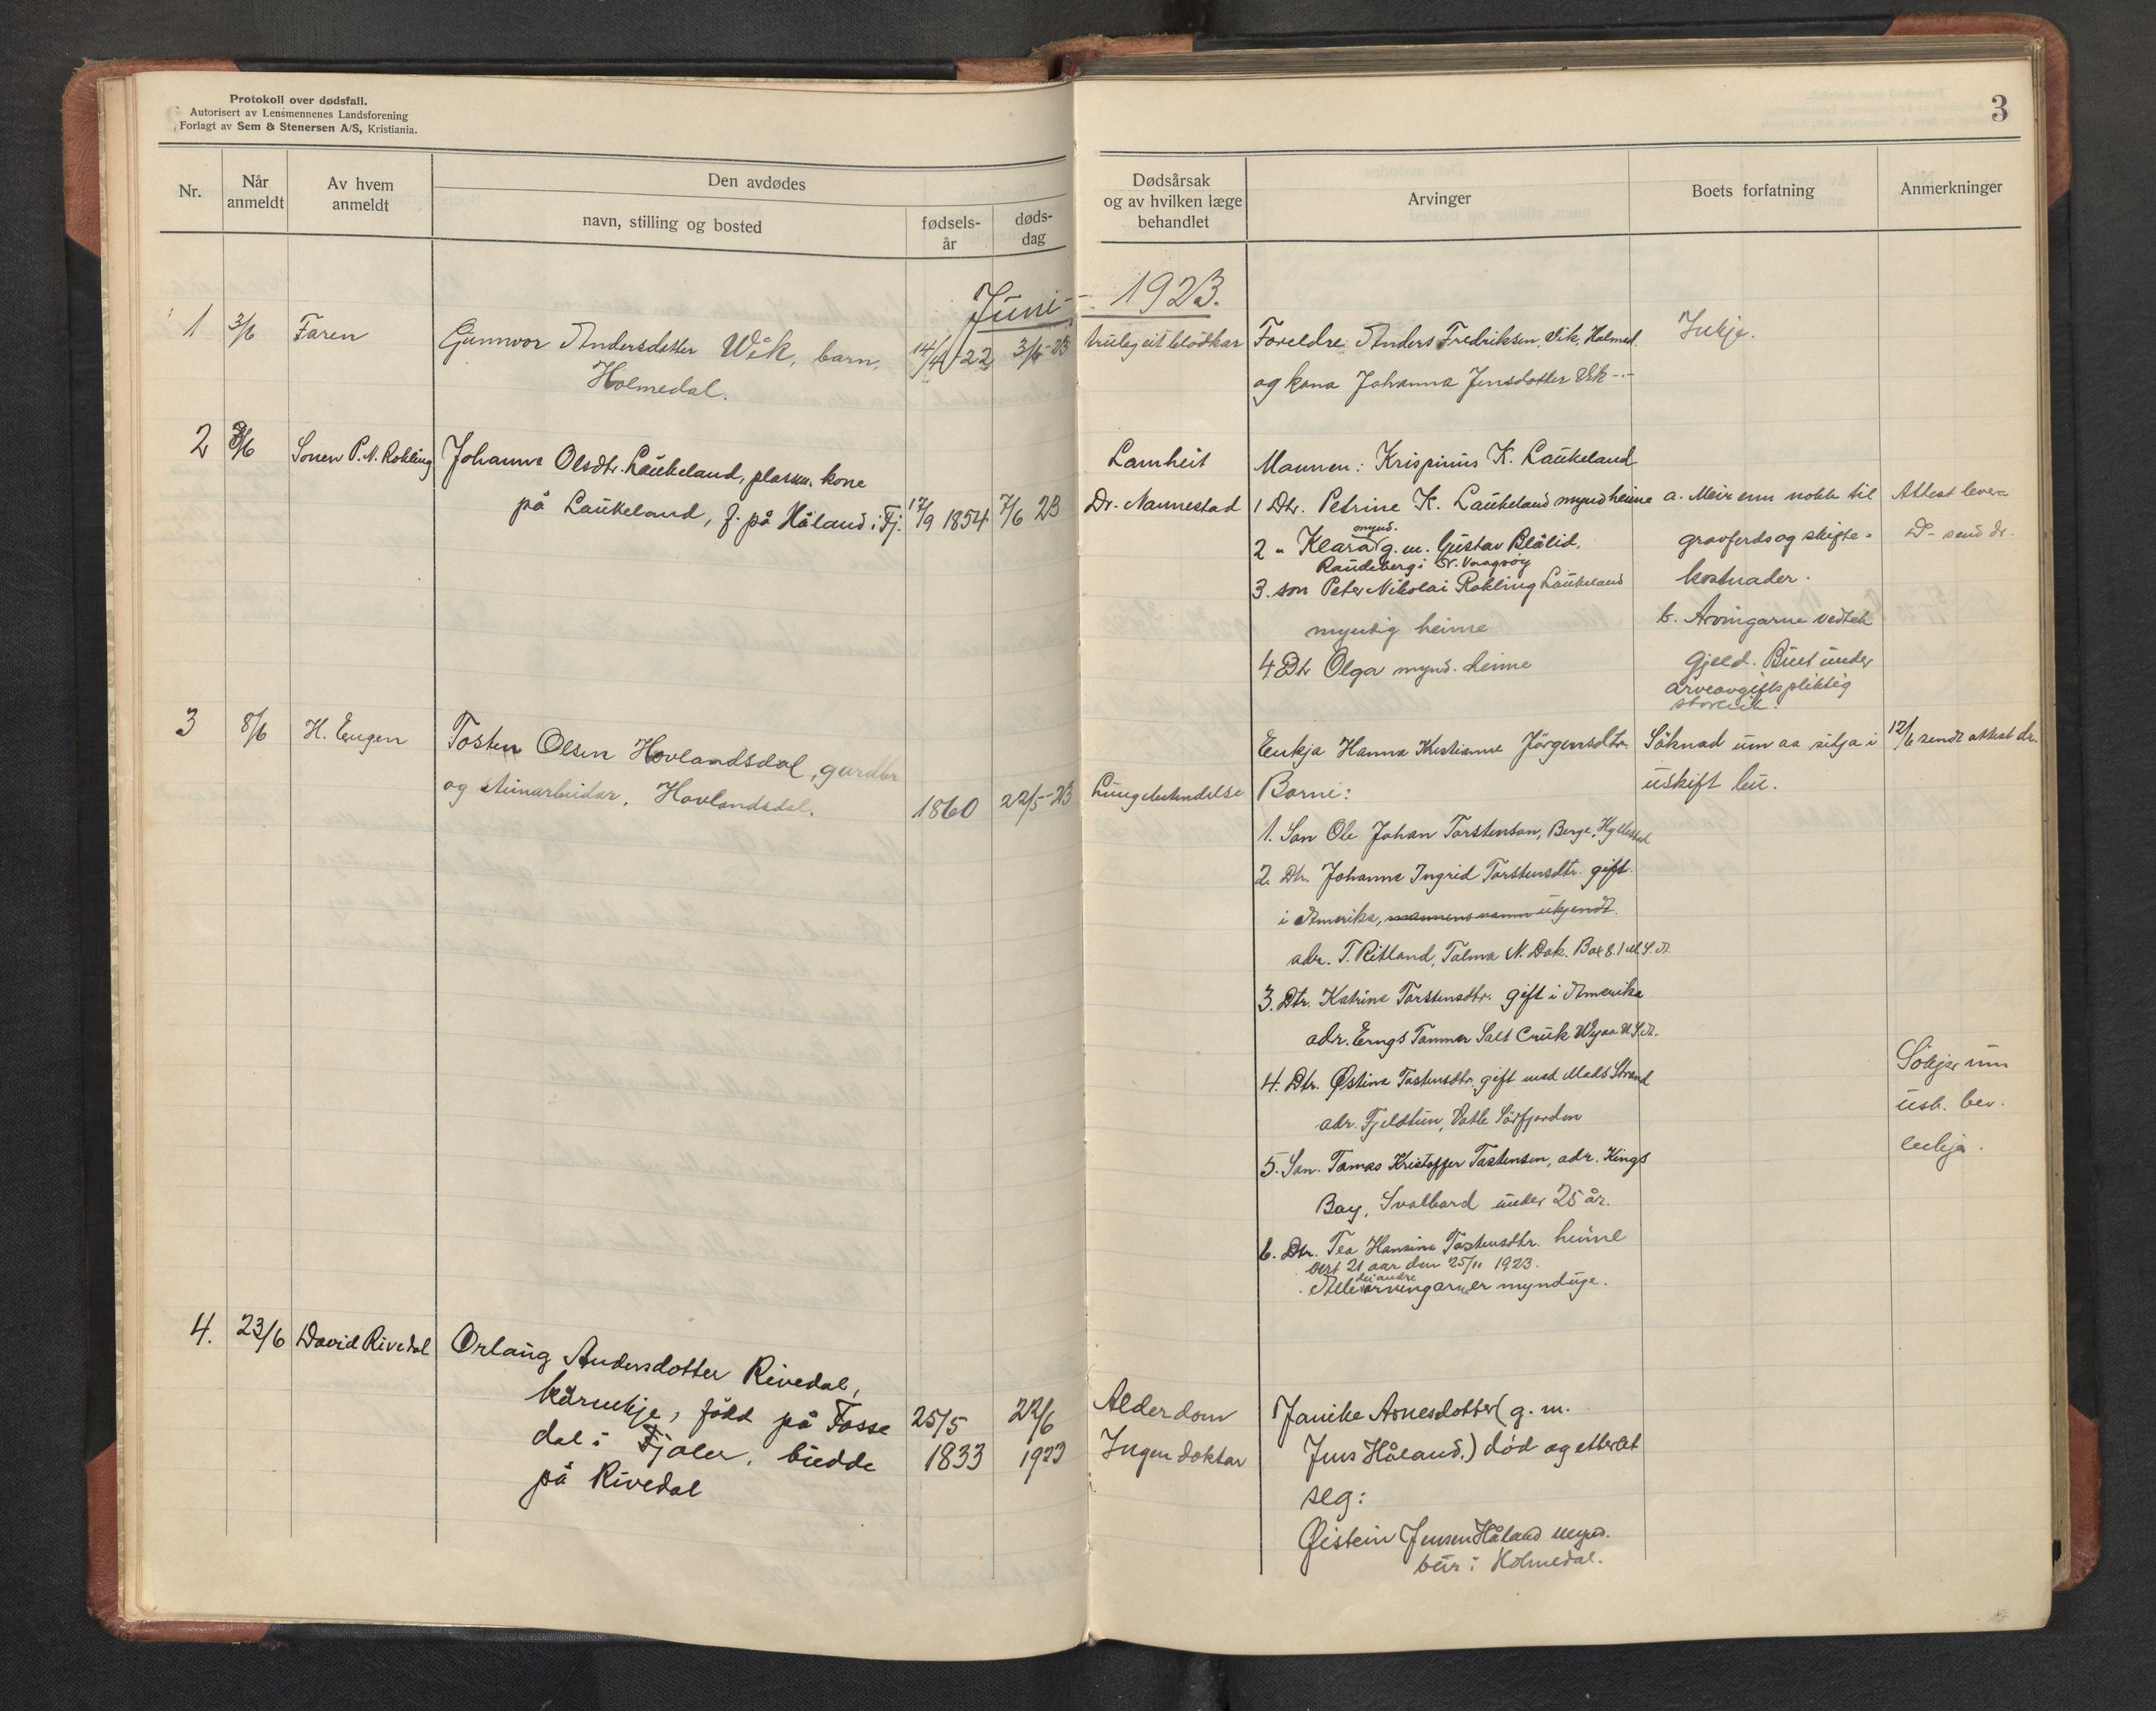 Protokoll over dødsfall.
Autorisert av Lensmennenes Landsforening
Forlagt av Sem & Stenersen A/S, Kristiania.
3
Nr.
Når anmeldt
Av hvem anmeldt
Den avdødes
navn, stilling og bosted
fødsels-år
døds-dag
Dødsårsak
og av hvilken læge
behandlet
Arvinger
Boets forfatning
Anmerkninger
Juni - 1923.
1 3/6 Faren Gunnvor Andersdotter Wik, barn, 14/4-22 3/6-23
Holmedal.
eit blodkar
Foreldre Anders Fredriksen Vik, Holmed.
og kona Johanna Jensdotter Vik -"-
Inkje.
2 8/6 Sonen P. N. Rokling Johanne Olsdtr. Laukeland, plassm. kone
på Laukeland, f. på Håland i Fj. 17/9 1854 7/6 23
Lamheit
Dr. Nannestad
Mannen: Krispinus K. Laukeland
1 Dtr. Petrine K. Laukeland mynd heime
2 " Klara mynd. g. m. Gustav Blålid,
Raudeberg i N. Vaagsøy
3. son Peter Nikolai Rokling Laukeland
myndig heime
4 Dtr Olga mynd. heime
a. Meir enn nokk til
gravferds og skifte-
kostnader.
b. Arvingarne vedtek
gjeld. Buet under
arveavgiftspliktig
storleik.
Attest levera
Do - send dr.
3 8/6 H. Eugen Tosten Olsen Hovlandsdal, gardbr
og steinarbeidar, Hovlandsdal. 1860 22/5-23
Lungebetendelse
Enkja Hanna Kristianne Jörgensdtr.
Borni:
1. Son Ole Johan Torstenson, Berge, Hyllestad
2. Dtr. Johanne Ingrid Torstensdtr. gift
i Amerika, mannens namn ukjendt.
adr. T. Ritland, Talma N. Dak. Box 81 U.S.A.
3. Dtr. Katrine Torstensdtr. gift i Amerika
adr. Tammer Salt Cruk U.S.A.
4. Dtr. Østine Tostensdtr. gift med Mads Strand
adr. Fjeldtun, Vatle Sörfjorden
5. Son. Tomas Kristoffer Tostensen, adr. Kings
Bay, Svalbard under 25 år.
6. Dtr. Tea Hansine Tostensdtr. heime
vert 21 aar den 25/11 1923.
Alle dei andre arvingarne er mynduge.
Söknad um aa sitja i
uskift bu.
12/6 sendt attest dr.
Sökjer um
usk. bev.
enkja.
4. 23/6 David Rivedal Orlaug Andersdotter Rivedal,
kårenkje, född på Fosse
dal i Fjaler, budde
på Rivedal
25/5
1833
22/6
1923
Alderdom
Ingen doktar
Janike Arnesdotter (g. m.
Jens Håland.) död og etterlet
seg:
Øistein Jensen Håland mynd.
bur i Holmedal.